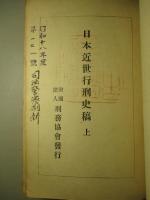 日本近世行刑史稿 上
財團
法人 刑務協會發行
昭和十八年度
第一二一號